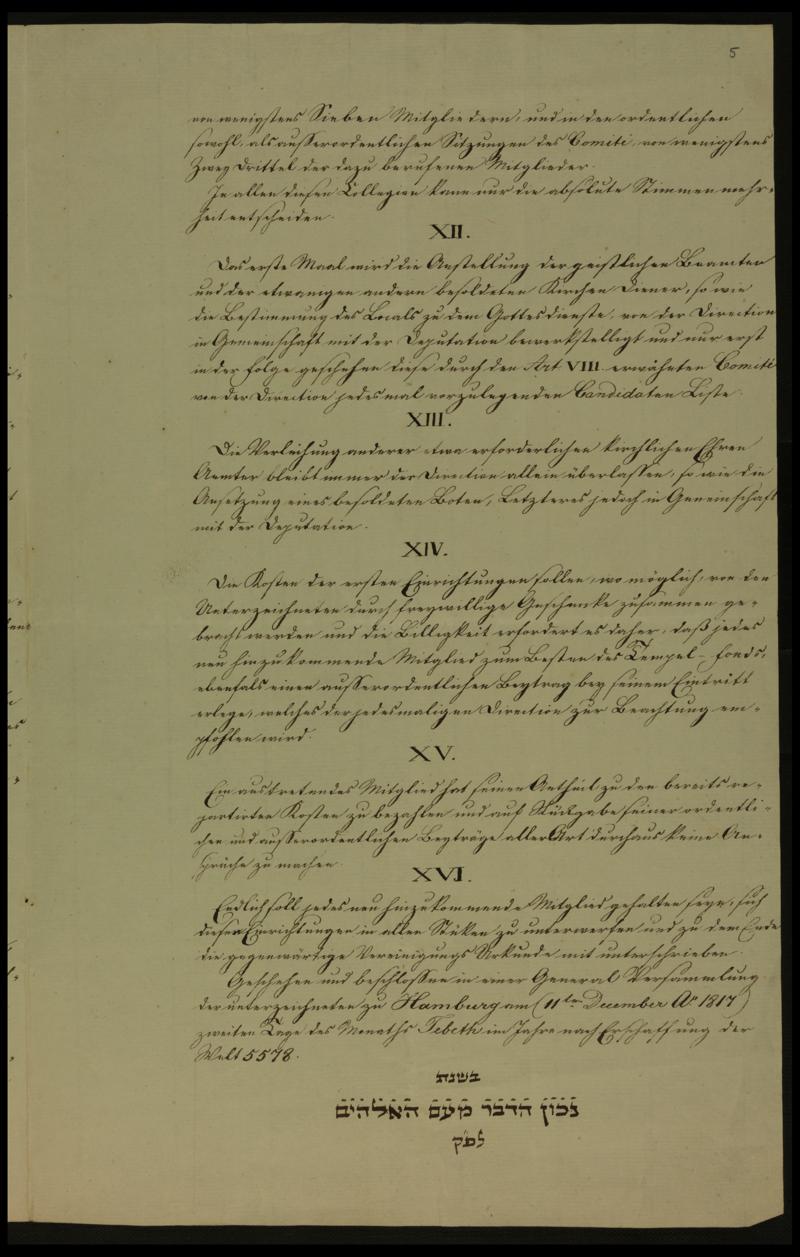 5
von wenigstens Sieben Mitgliedern, und in den ordentlichen
sowohl, als ausserordentlichen Sitzungen des Comité, von wenigstens
Zwey Drittel der dazu berufenen Mitglieder.
In allen diesen Collegien kann nur die absolute Stimmenmehr-
heit entscheiden.
XII.
Das erste Maal wird die Anstellung der geistlichen Beamten
und der etwanigen andern besoldeten Kirchen Diener, so wie
die Bestimmung des Locals zu dem Gottesdienste, von der Direction
in Gemeinschaft mit der Deputation bewerkstelligt und nur erst
in der Folge geschehen diese durch den Art VIII erwähnten Comité
von der Direction jedesmal vorzulegenden Candidaten Liste.
XIII.
Die Verleihung anderer etwa erforderlichen kirchlichen Ehren
Aemter bleibt immer der Direction allein überlassen, so wie die
Ansetzung eines besoldeten Boten, Letzteres jedoch in Gemeinschaft
mit der Deputation.
XIV.
Die Kosten der ersten Einrichtungen sollen, wo möglich, von den
Unterzeichneten durch freywillige Geschenke zusammen ge-
bracht werden und die Billigkeit erfordert es daher, daß jedes
neu hinzukommende Mitglied zum Besten des Tempel-Fonds,
ebenfals einen ausserordentlichen Beytrag bey seinem Eintritt
erlege, welches der jedesmaligen Direction zur Beachtung em-
pfohlen wird.
XV.
Ein austretendes Mitglied hat seinen Antheil zu den bereits re-
partirten Kosten zu bezahlen und auf Rückgabe seiner ordentli-
chen und ausserordentlichen Beyträge aller Art durchaus keine An-
sprüche zu machen.
XVI.
Endlich soll jedes neu hinzukommende Mitglied gehalten seyn, sich
diesen Einrichtungen in allen Stüken zu unterwerfen und zu dem Ende
die gegenwärtige Vereinigungs Urkunde mit unterschreiben.
Geschehen und beschlossen in einer General Versammlung
der unterzeichneten zu Hamburg am (11ten December Ao 1817)
zweiten Tage des Monaths Tebeth im Jahre nach Erschaffung der
Welt 5578.
בשנת
נכון הדבר מעם האלהים
לפק